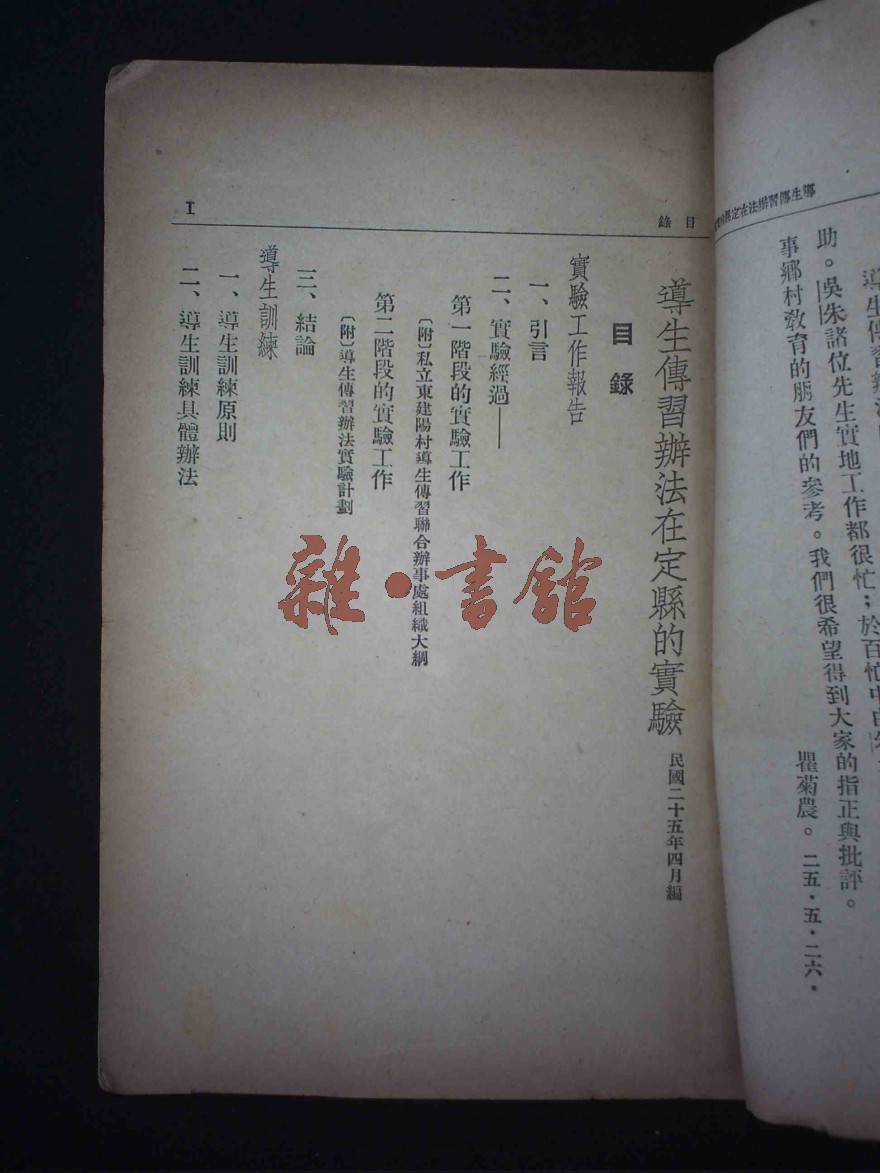 導生傳習辦法在定縣
導生傳習辦法
助。吳朱諸位先生實地工作都很忙；於百忙中
事鄉村教育的朋友們的參考。我們很希望得到大家的指正與批評。
瞿菊農。二五・五・二六・
目錄
I
導生傳習辦法在定縣的實驗 民國二十五年四月編
目錄
實驗工作報告
一、引言
二、實驗經過——
第一階段的實驗工作
〔附〕私立東建陽村導生傳習聯合辦事處組織大綱
第二階段的實驗工作
〔附〕導生傳習辦法實驗計劃
三、結論
導生訓練
一、導生訓練原則
二、導生訓練具體辦法
雜・書館